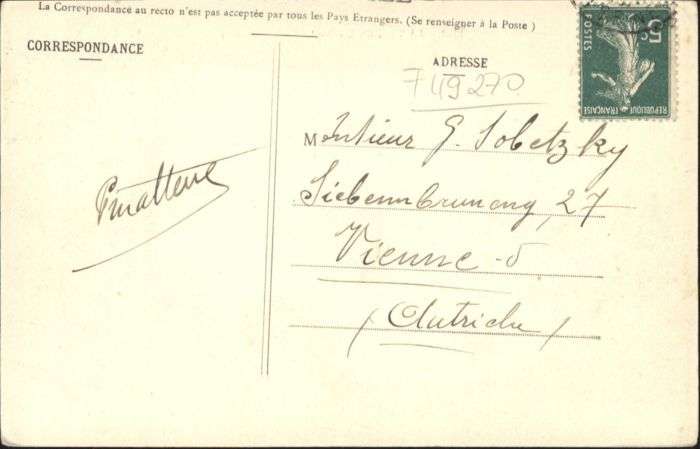 La Correspondance au recto n'est pas acceptée par tous les Pays Etrangers. (Se renseigner à la Poste)
CORRESPONDANCE
ADRESSE
749270
Monsieur G. Sobetzky
27
Vienne - 5
(Autriche)
5
POSTES
REPUBLIQUE FRANÇAISE